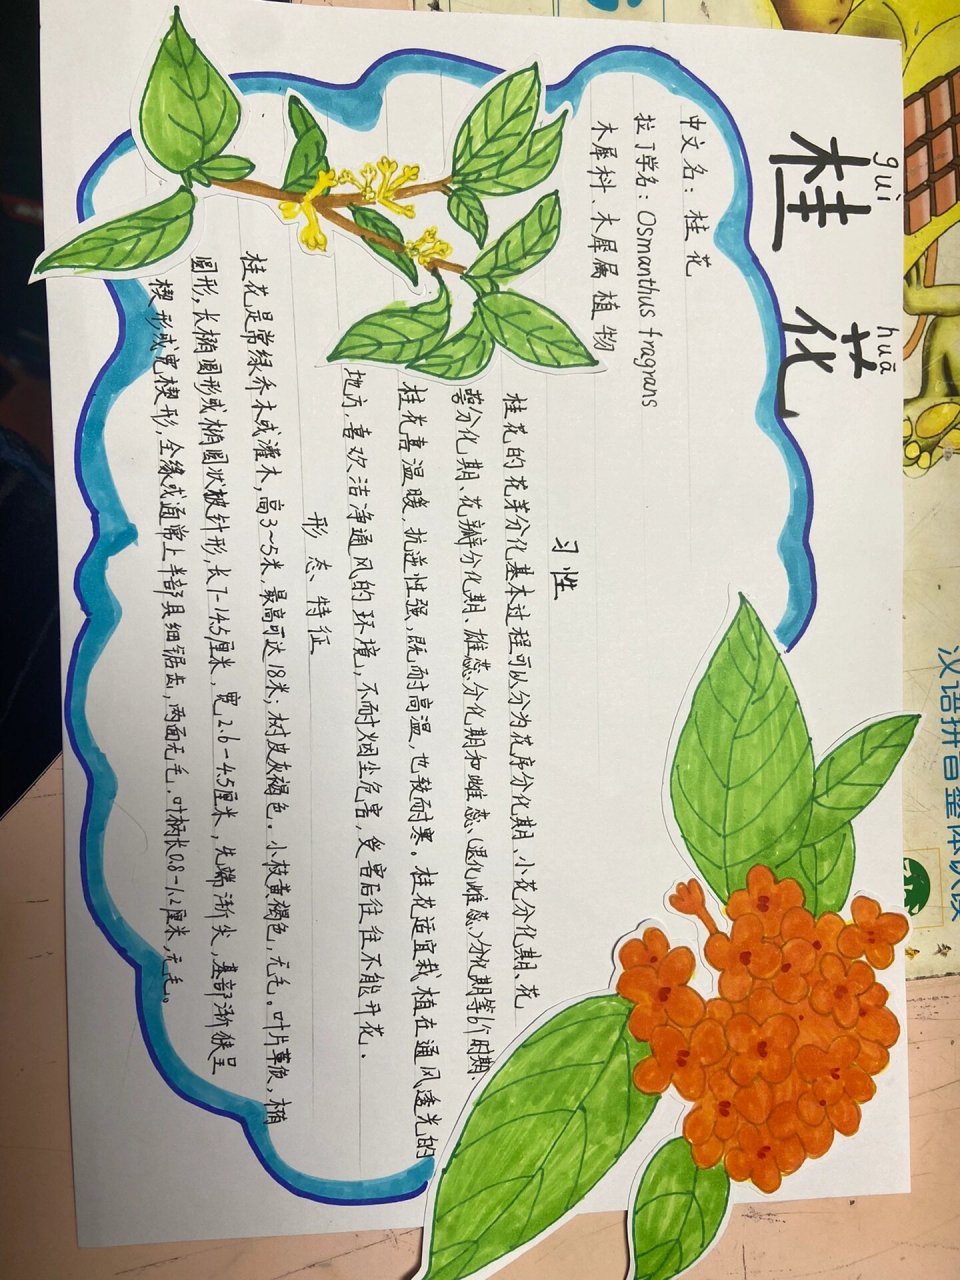 guì huā
桂 花
中文名：桂花
拉丁学名：Osmanthus fragrans
木犀科、木犀属植物
习性
桂花的花芽分化基本过程可以分为花序分化期、小花分化期、花
萼分化期、花瓣分化期、雄蕊分化期和雌蕊（退化雌蕊）分化期等6个时期.
桂花喜温暖，抗逆性强，既耐高温，也较耐寒。桂花适宜栽植在通风透光的
地方，喜欢洁净通风的环境，不耐烟尘危害，受害后往往不能开花。
形态特征
桂花是常绿乔木或灌木，高3~5米，最高可达18米；树皮灰褐色。小枝黄褐色，无毛。叶片革质，椭
圆形，长椭圆形或椭圆状披针形，长7-14.5厘米，宽2.6-4.5厘米，先端渐尖，基部渐狭呈
楔形或宽楔形，全缘或通常上半部具细锯齿，两面无毛，叶柄长0.8-1.2厘米，无毛。
汉语拼音整体认读